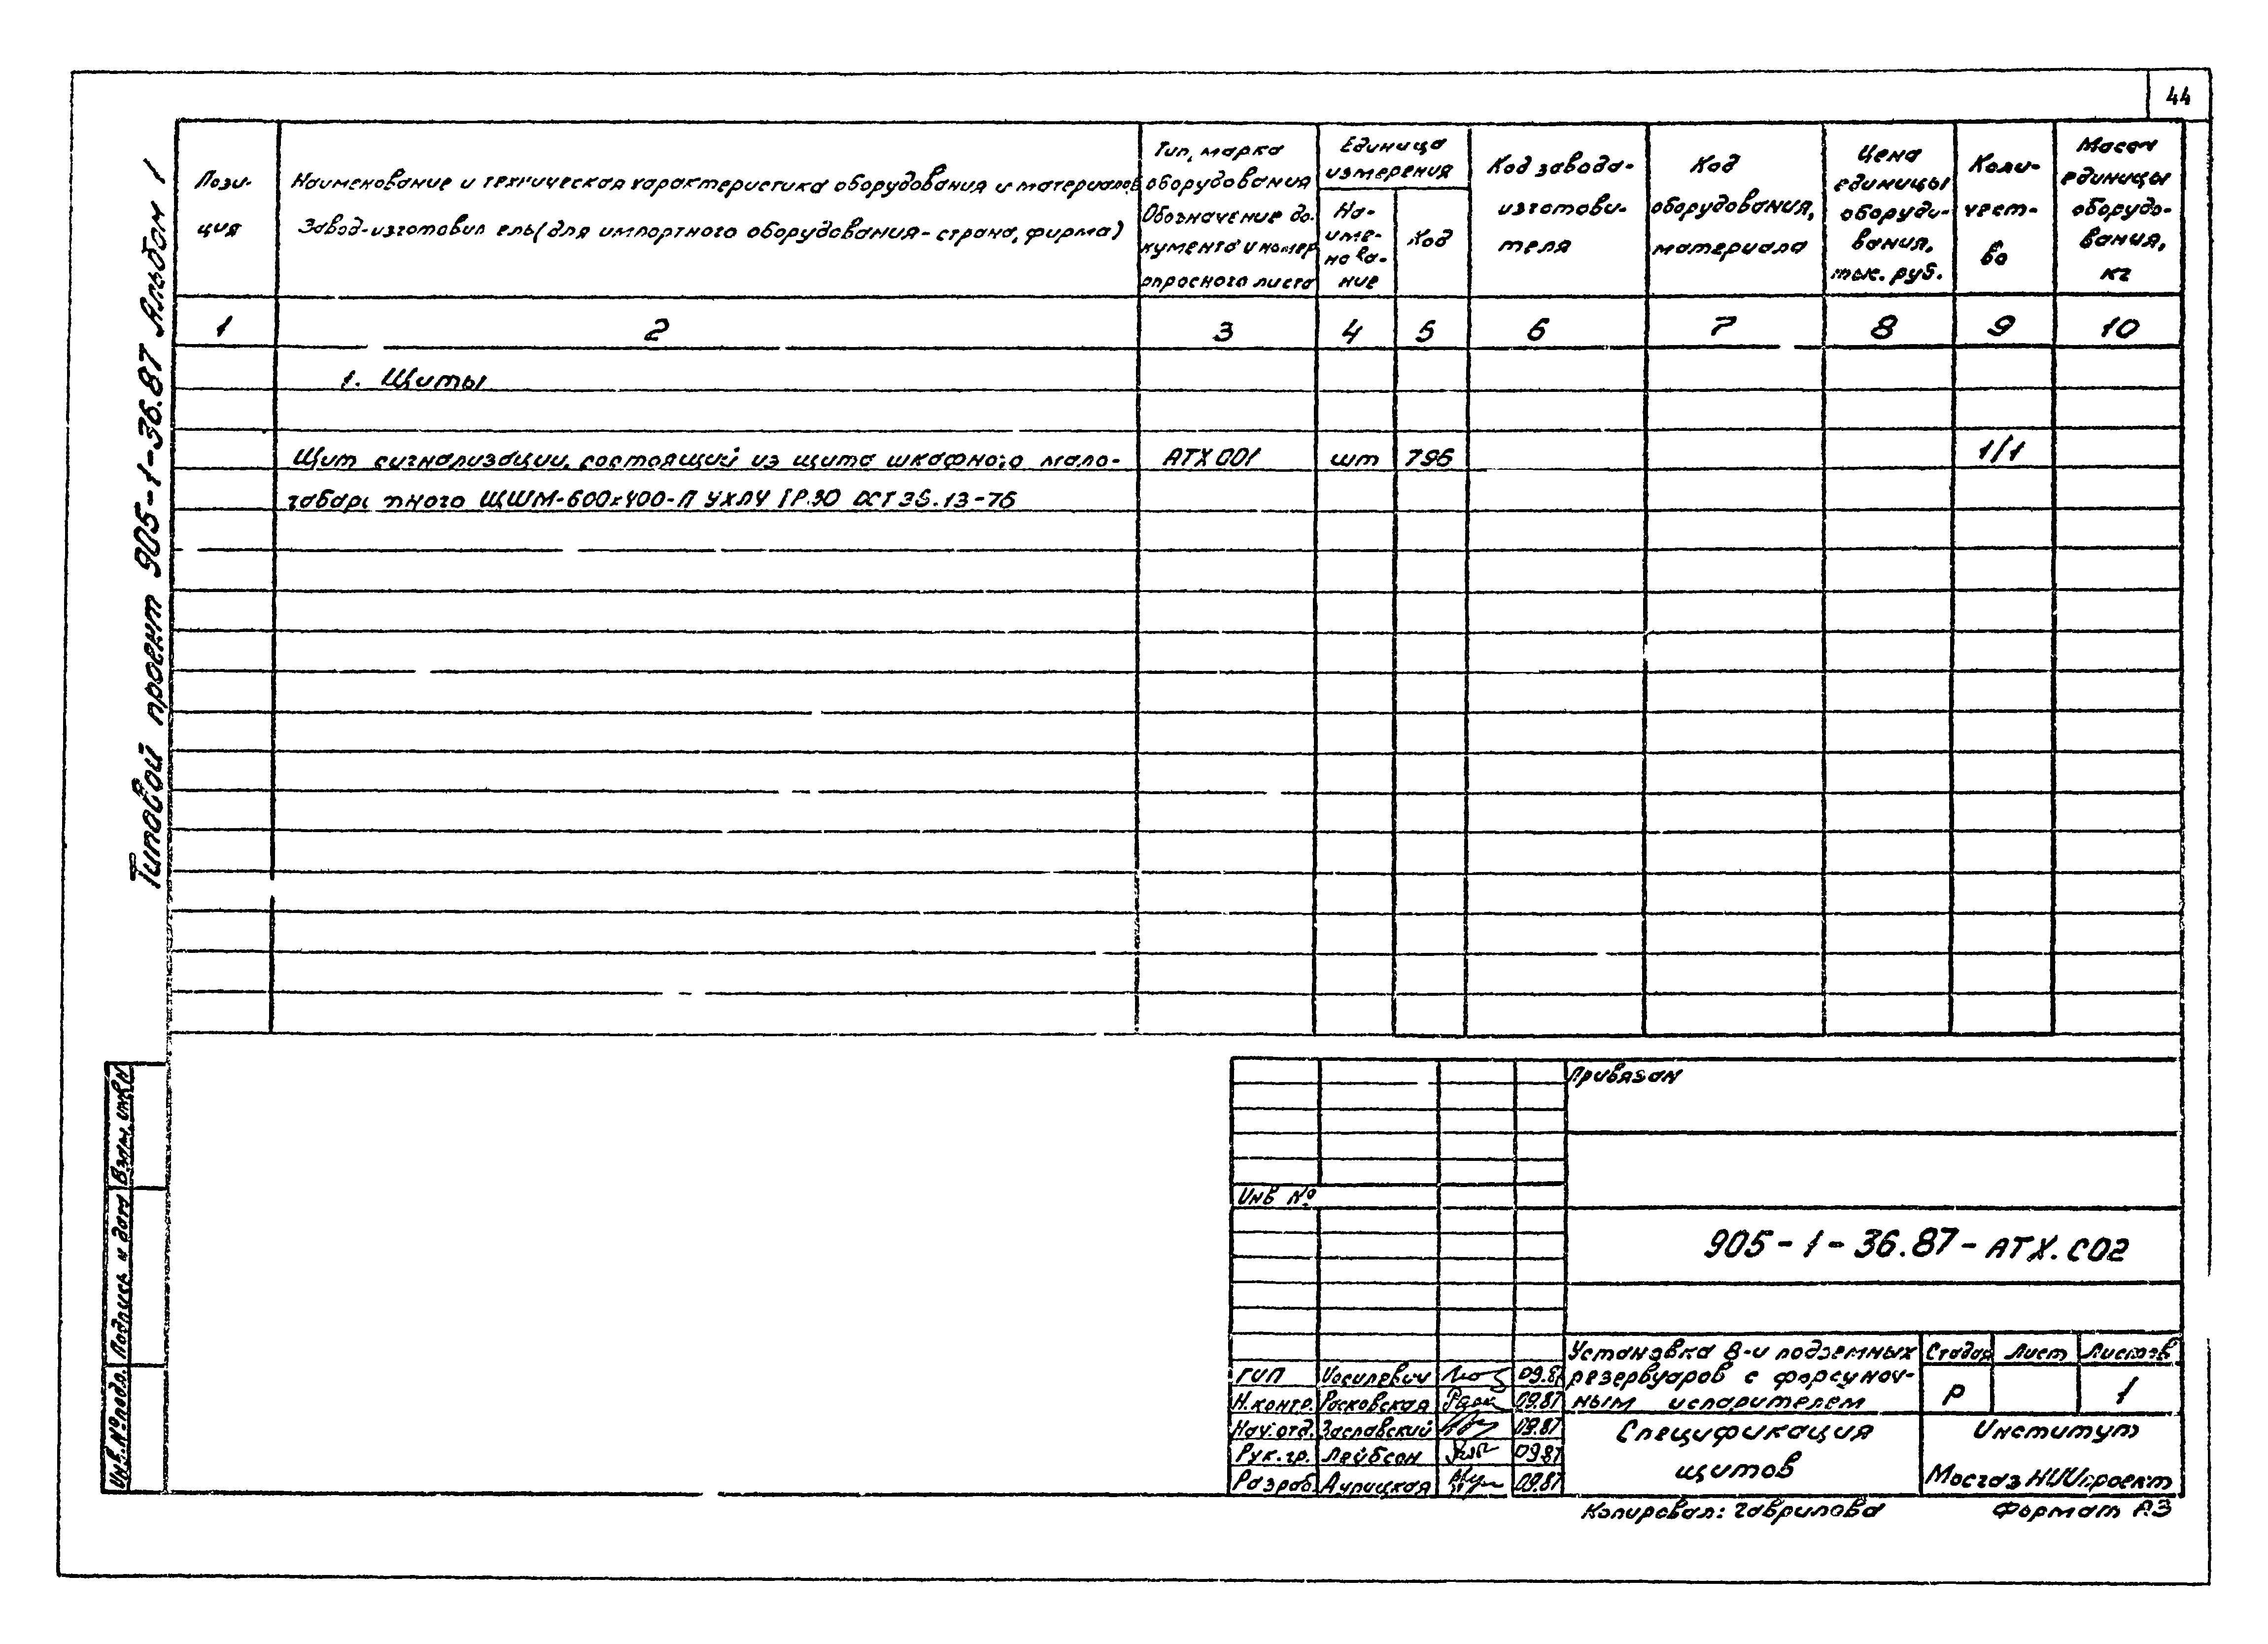 44
Типовой проект 905-1-36.87 Альбом 1
Пози-
ция
Наименование и техническая характеристика оборудования и материалов
Завод-изготовитель (для импортного оборудования - страна, фирма)
Тип, марка
оборудования
Обозначение до-
кумента и номер
опросного листа
Единица
измерения
На-
име-
нова-
ние
Код
Код завода-
изготови-
теля
Код
оборудования,
материала
Цена
единицы
оборудо-
вания,
тыс. руб.
Коли-
чест-
во
Масса
единицы
оборудо-
вания,
кг
1 2 3 4 5 6 7 8 9 10
1. Щиты
Щит сигнализации, состоящий из щита шкафного мало- АТХ 001 шт 796 1/1
габаритного ЩШМ-600х400-П УХЛ4 IP.30 ОСТ 36.13-76
Взам. инв N
Подпись и дата
Инв. № подл.
Привязан
Инв №
905-1-36.87-АТХ.С02
Установка 8-и подземных
резервуаров с форсуноч-
ным испарителем
Стадия Лист Листов
Р 1
ГИП Иосилевич 09.87
Н.контр. Расковская 09.87
Нач.отд. Заславский 09.87
Рук.гр. Лейбсон 09.87
Разраб. 09.87
Спецификация
щитов
Институт
МосгазНИИпроект
Копировал: Гаврилова Формат А3